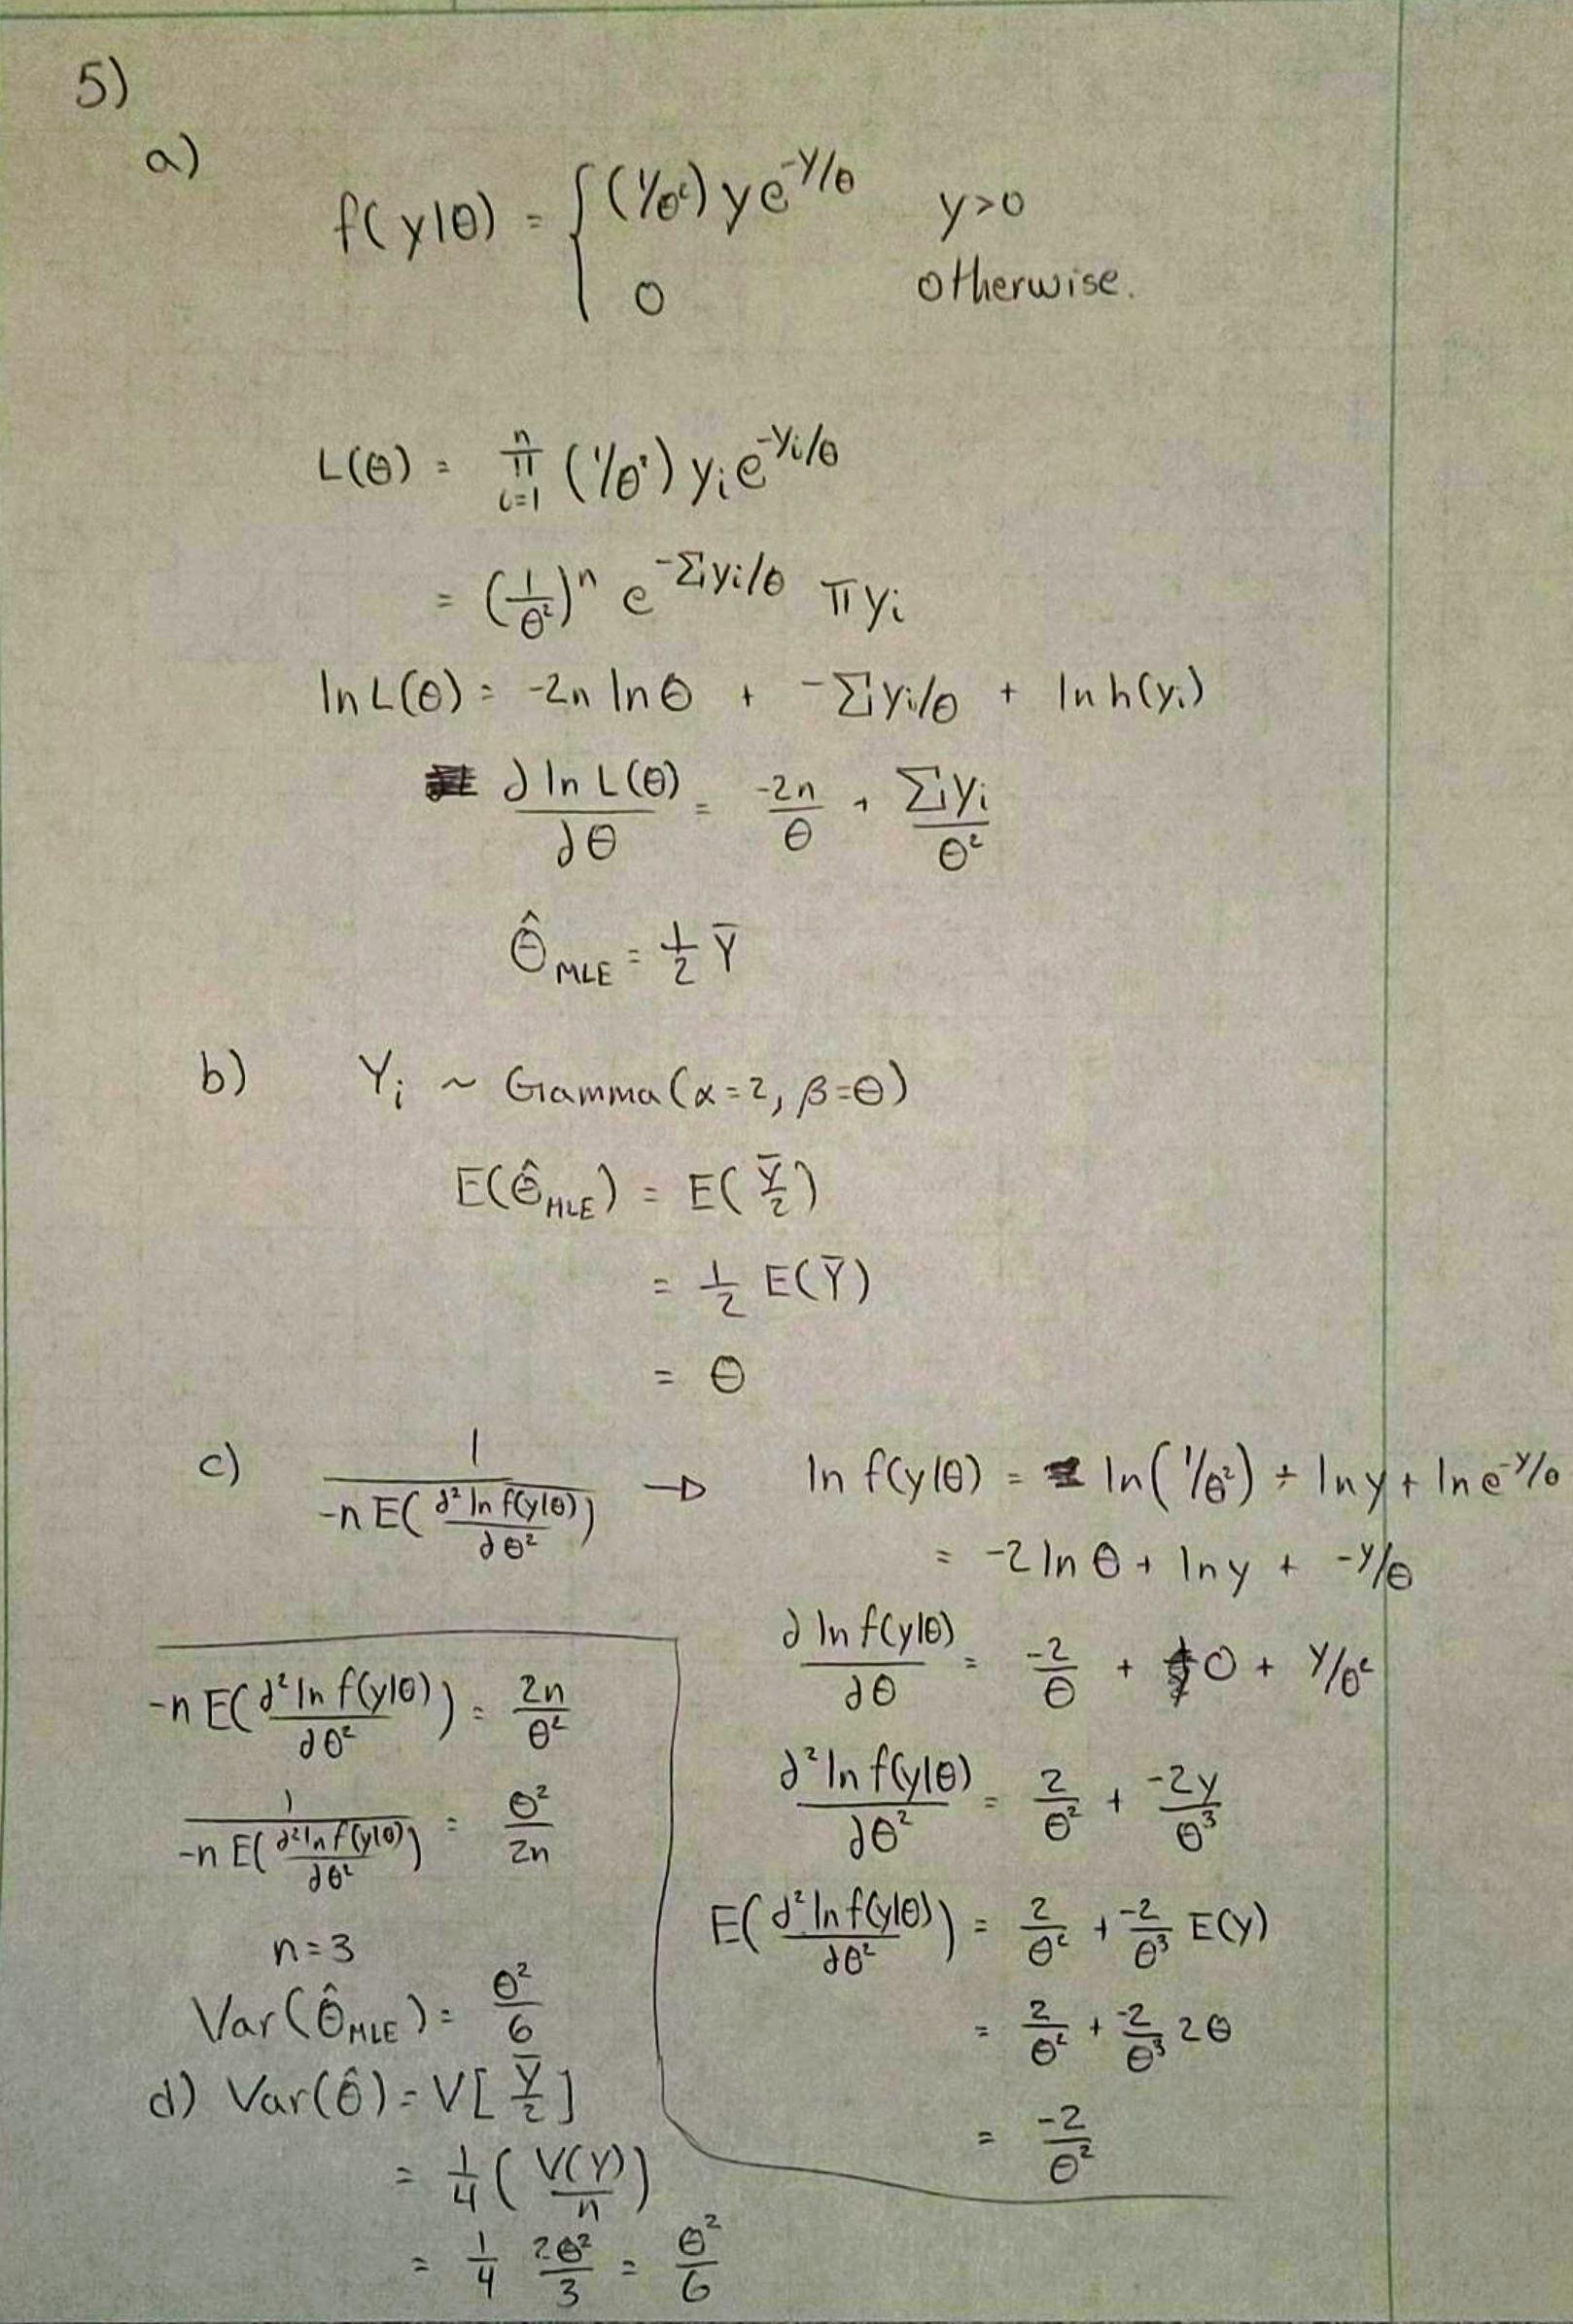 5)
a)
f(y|θ) = { (1/θ²) y e^{-y/θ} y>0
0 otherwise.
L(θ) = ∏_{i=1}^{n} (1/θ²) y_i e^{-y_i/θ}
= (1/θ²)^n e^{-Σy_i/θ} π y_i
ln L(θ) = -2n ln θ + -Σy_i/θ + ln h(y_i)
∂ ln L(θ)/∂θ = -2n/θ + Σy_i/θ²
θ̂_MLE = 1/2 Ȳ
b) Y_i ~ Gamma(α=2, β=θ)
E(θ̂_MLE) = E(Ȳ/2)
= 1/2 E(Ȳ)
= θ
c) 1/(-n E(∂² ln f(y|θ)/∂θ²)) → ln f(y|θ) = ln(1/θ²) + ln y + ln e^{-y/θ}
= -2 ln θ + ln y + -y/θ
∂ ln f(y|θ)/∂θ = -2/θ + 0 + y/θ²
∂² ln f(y|θ)/∂θ² = 2/θ² + -2y/θ³
E(∂² ln f(y|θ)/∂θ²) = 2/θ² + -2/θ³ E(y)
= 2/θ² + -2/θ³ 2θ
= -2/θ²
-n E(∂² ln f(y|θ)/∂θ²) = 2n/θ²
1/(-n E(∂² ln f(y|θ)/∂θ²)) = θ²/2n
n=3
Var(θ̂_MLE) = θ²/6
d) Var(θ̂) = V[Ȳ/2]
= 1/4 (V(Y)/n)
= 1/4 2θ²/3 = θ²/6